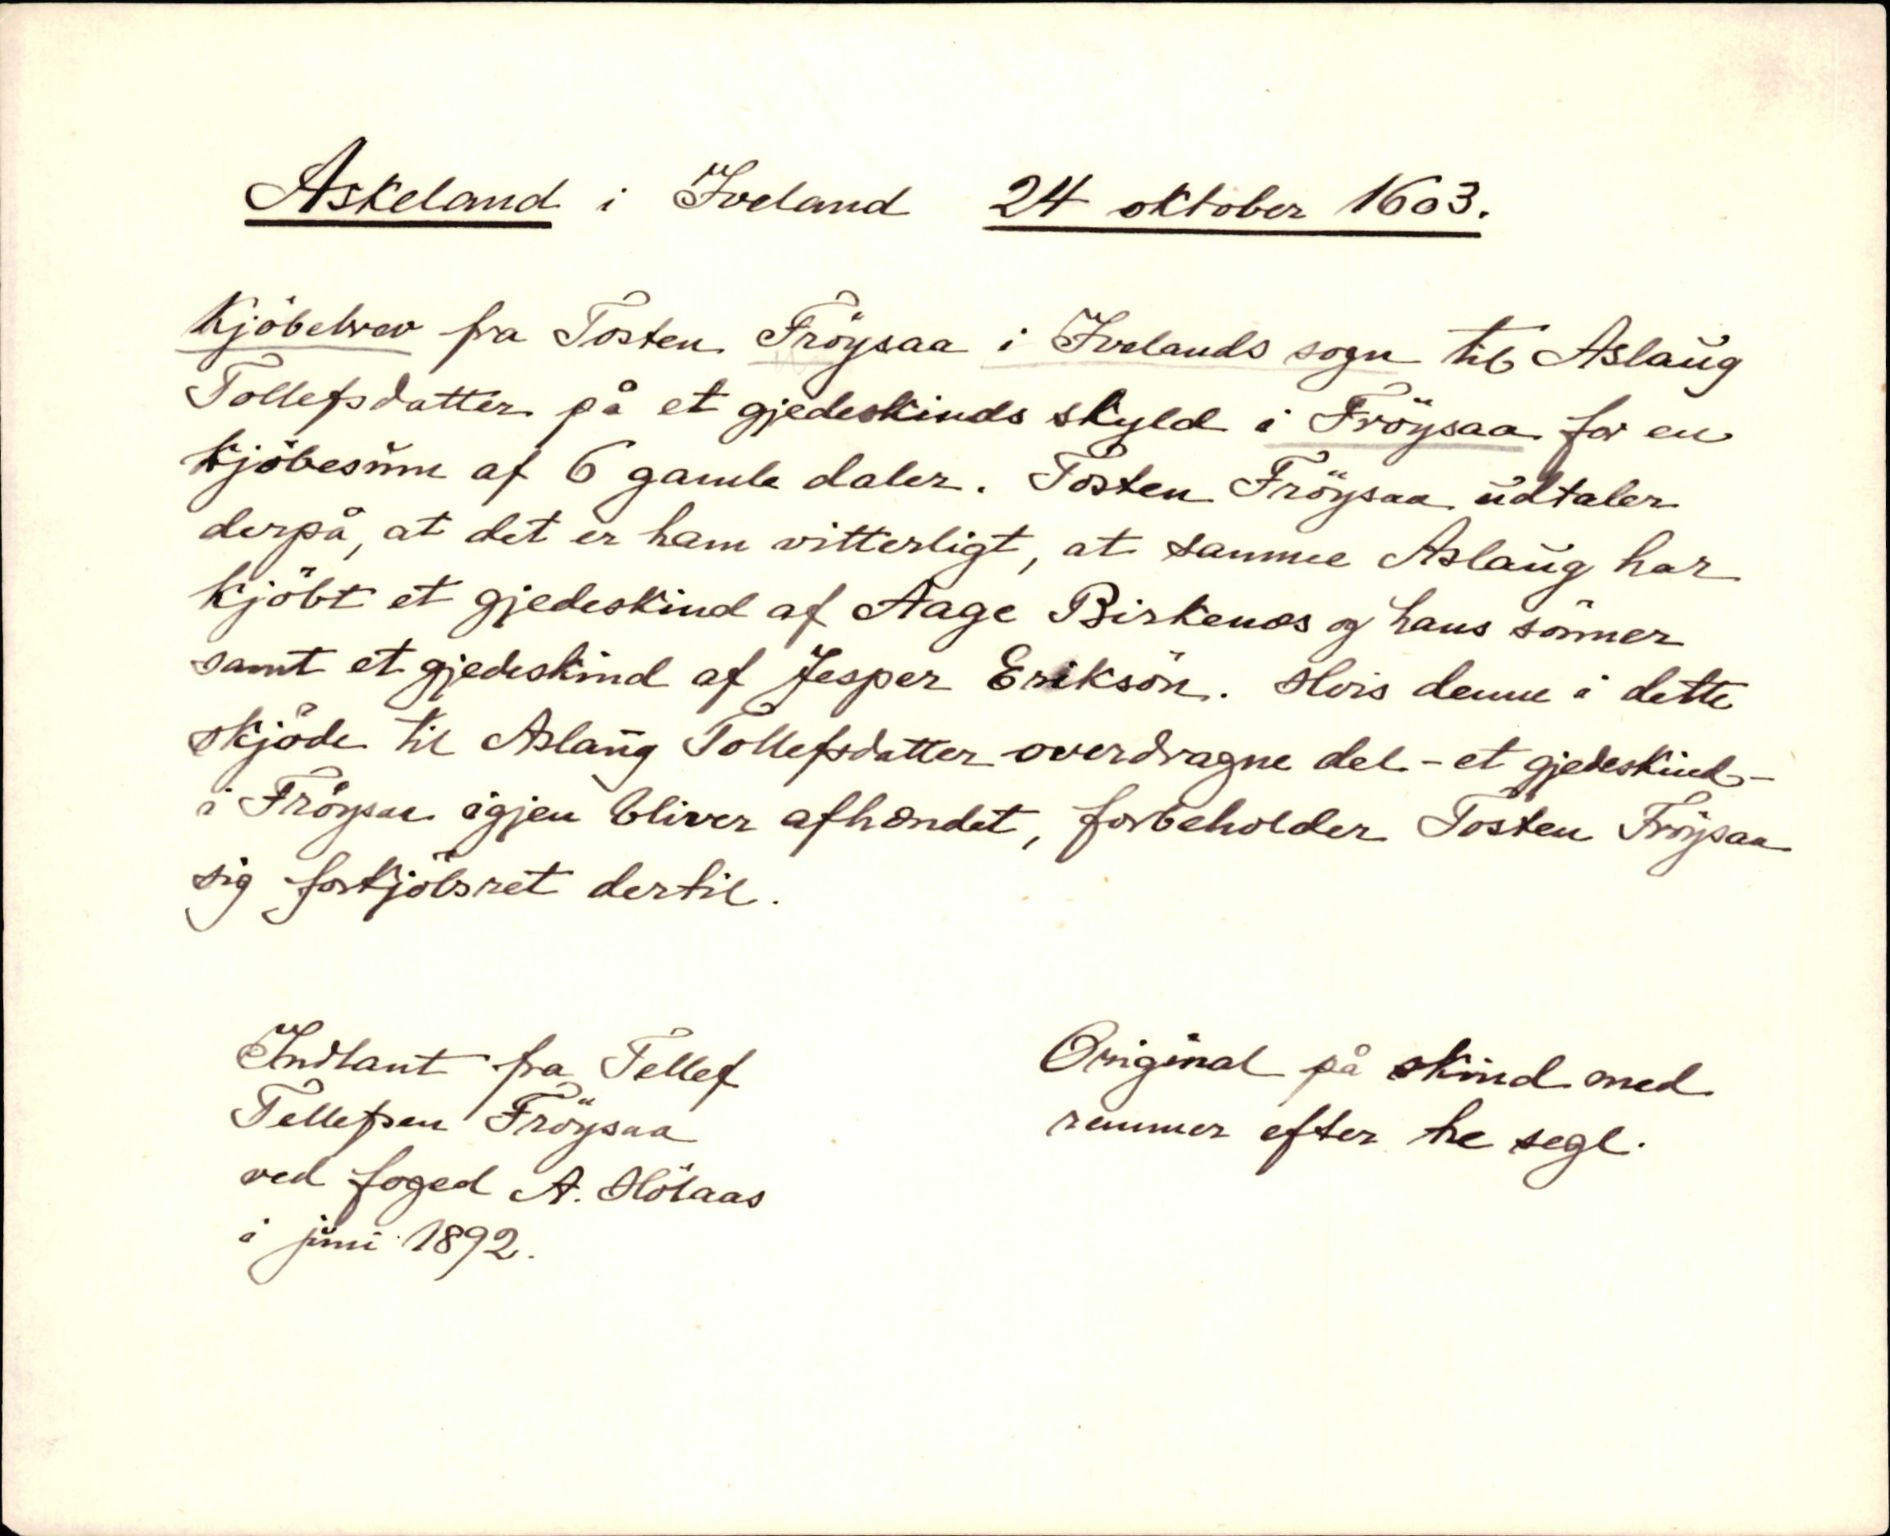 Askeland i Iveland 24 oktober 1603.
Kjöbebrev fra Tosten Fröysaa i Ivelands sogn til Aslaug
Tollefsdatter på et gjedeskinds skyld i Fröysaa for en
kjöbesum af 6 gamle daler. Tosten Fröysaa udtaler
derpå, at det er ham vitterligt, at samme Aslaug har
kjöbt et gjedeskind af Aage Birkenæs og hans sönner
samt et gjedeskind af Jesper Eriksön. Hvis denne i dette
skjöde til Aslaug Tollefsdatter overdragne del - et gjedeskind -
i Fröysaa igjen bliver afhændet, forbeholder Tosten Fröysaa
sig forkjöbsret dertil.
Indlaant fra Tellef
Tellefsen Fröysaa
ved foged A. Hölaas
i juni 1892.
Original på skind med
remmer efter tre segl.